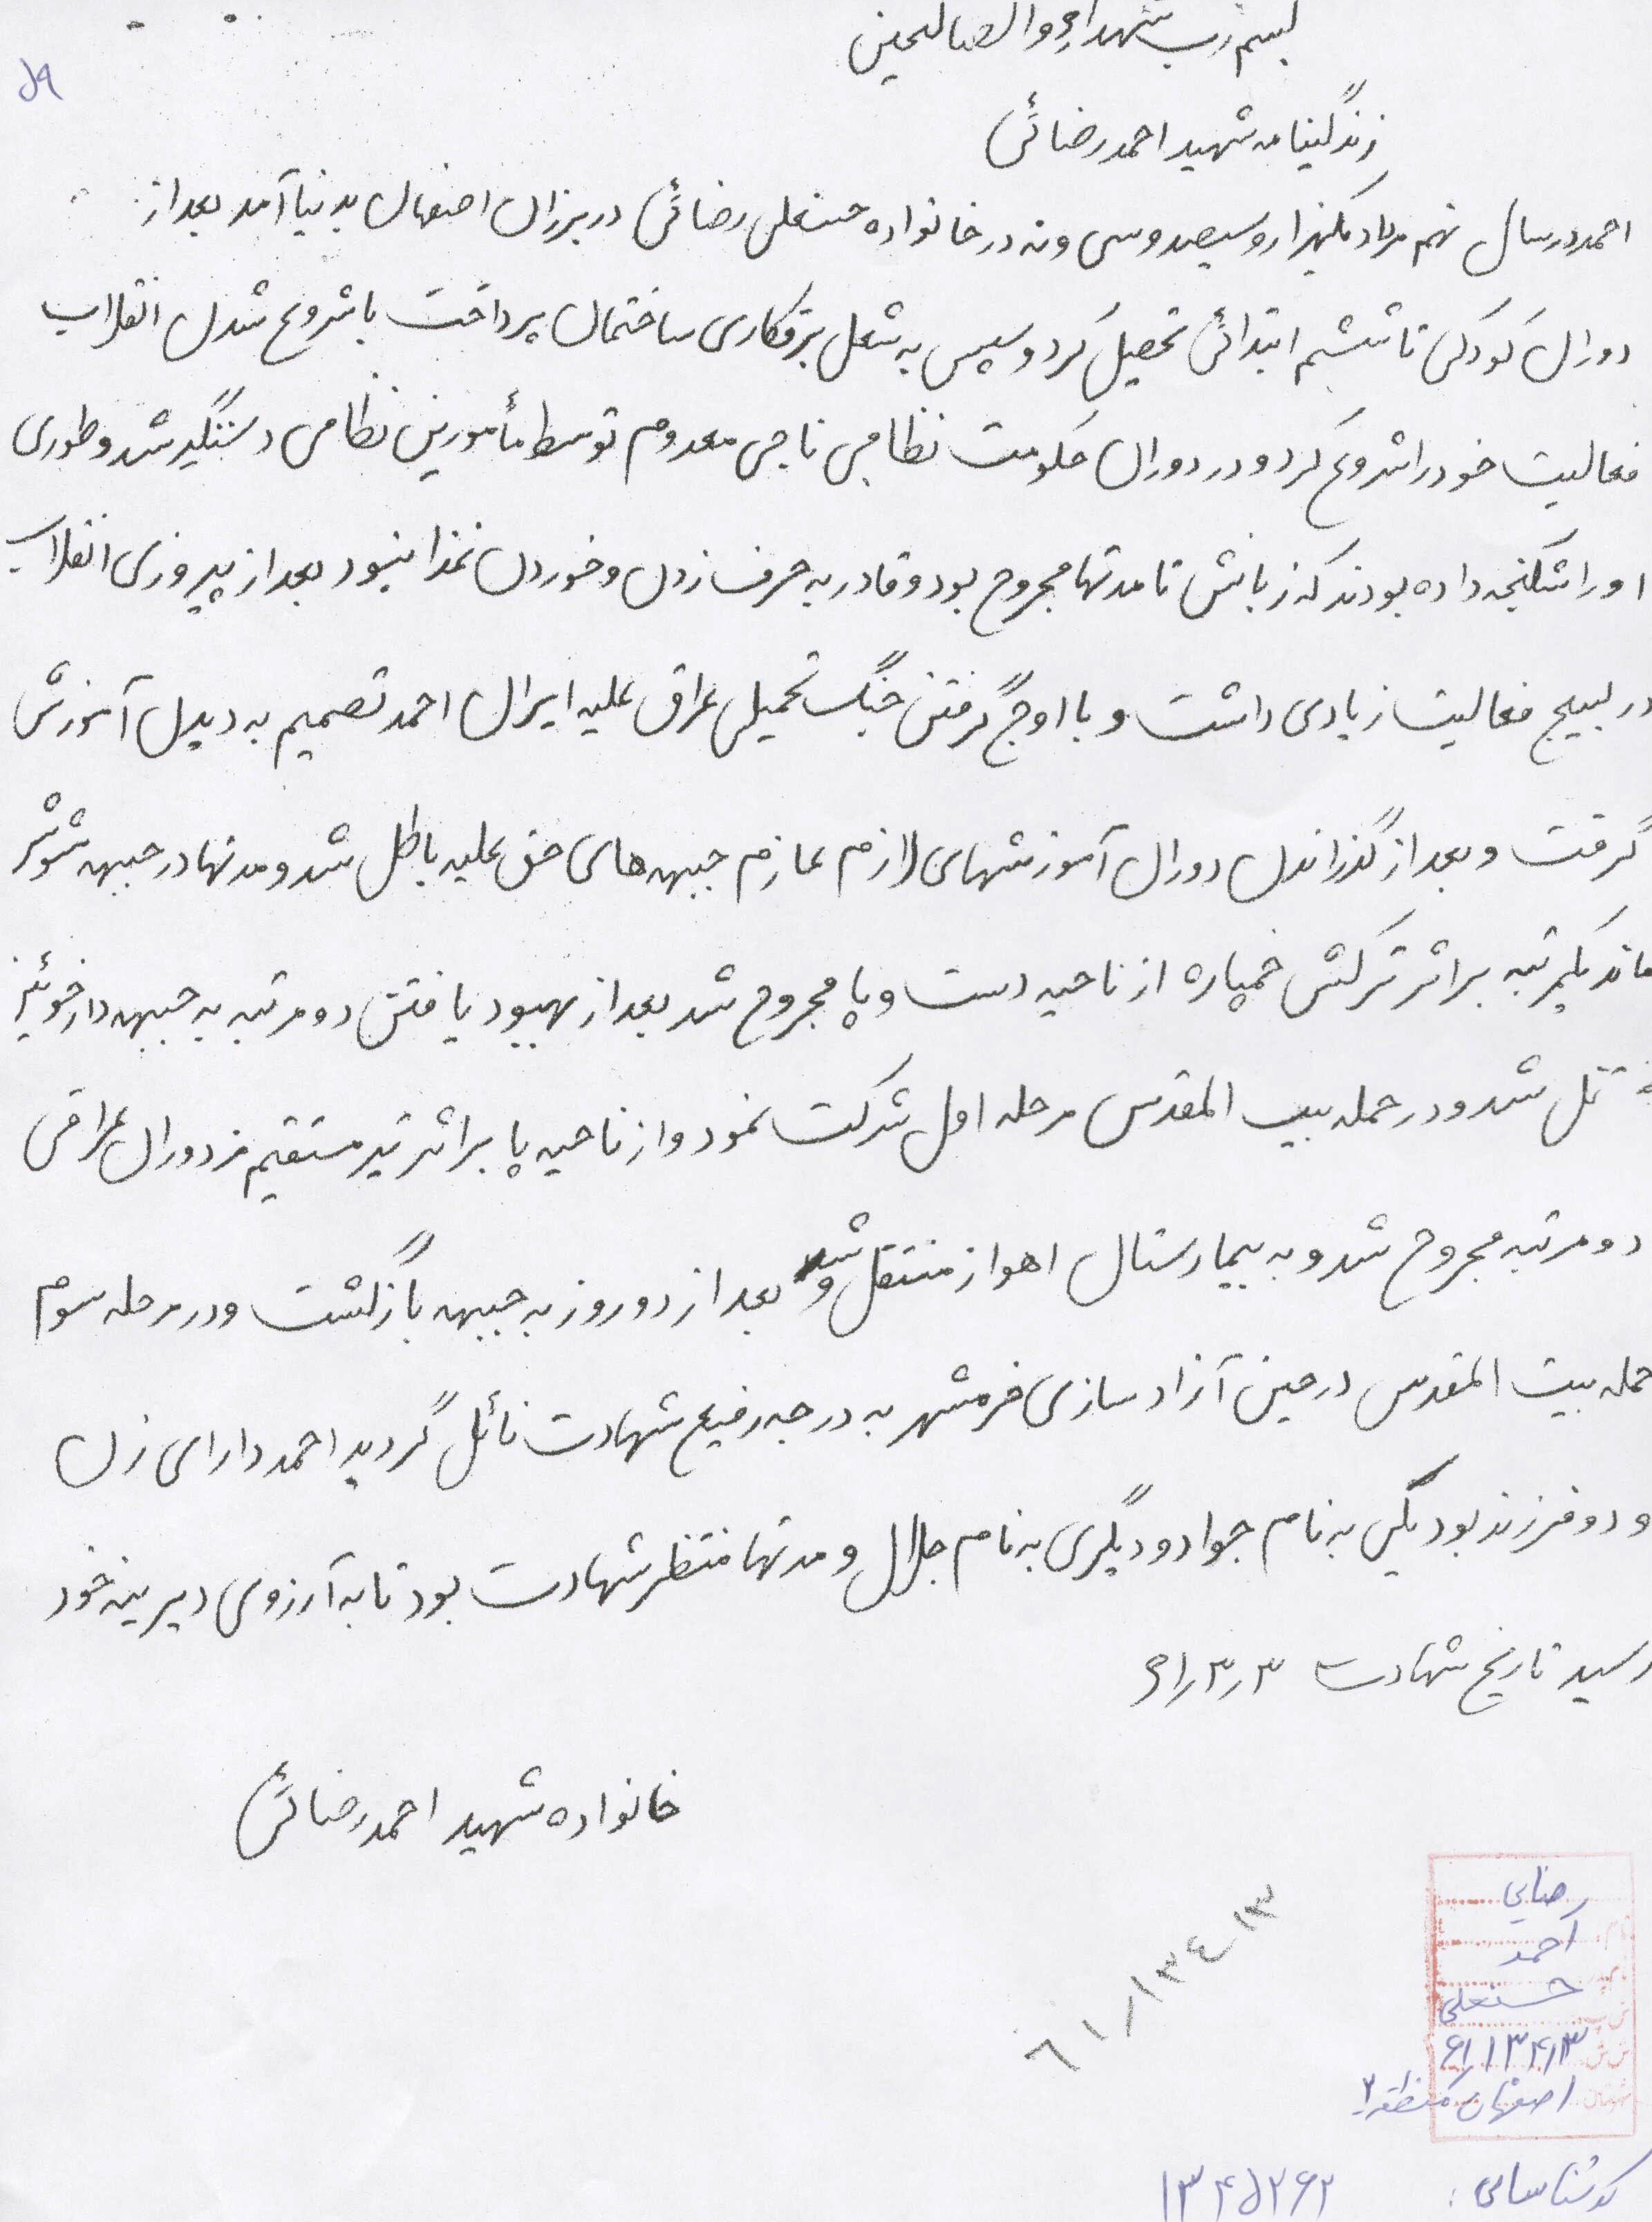 بسم رب شهداء والصالحین
۵۹
زندگینامه شهید احمد رضائی
احمد در سال نهم مرداد یکهزار و سیصد و سی و نه در خانواده حسنعلی رضائی در برزان اصفهان بدنیا آمد بعد از
دوران کودکی تا ششم ابتدائی تحصیل کرد و سپس به شغل برقکاری ساختمان پرداخت با شروع شدن انقلاب
فعالیت خود را شروع کرد و در دوران حکومت نظامی ناجی معدوم توسط مأمورین نظامی دستگیر شد و طوری
او را شکنجه داده بودند که زبانش تا مدتها مجروح بود و قادر به حرف زدن و خوردن غذا نبود بعد از پیروزی انقلاب
در بسیج فعالیت زیادی داشت و با اوج گرفتن جنگ تحمیلی عراق علیه ایران احمد تصمیم به دیدن آموزش
گرفت و بعد از گذراندن دوران آموزشهای لازم عازم جبهه های حق علیه باطل شد و مدتها در جبهه شوش
ماند یکمرتبه بر اثر ترکش خمپاره از ناحیه دست و پا مجروح شد بعد از بهبود یافتن دو مرتبه به جبهه دارخوئین
منتقل شد و در حمله بیت المقدس مرحله اول شرکت نمود و از ناحیه پا بر اثر تیر مستقیم مزدوران عراقی
دو مرتبه مجروح شد و به بیمارستان اهواز منتقل شد و بعد از دو روز به جبهه بازگشت و در مرحله سوم
حمله بیت المقدس در حین آزاد سازی خرمشهر به درجه رفیع شهادت نائل گردید احمد دارای زن
و دو فرزند بود یکی به نام جواد و دیگری به نام جلال و مدتها منتظر شهادت بود تا به آرزوی دیرینه خود
رسید تاریخ شهادت ۳ر۳ر۶۱
خانواده شهید احمد رضائی
۶۱/۱۳۴۱۳
رضایی
احمد
حسنعلی
۶۱/۱۳۴۱۳
اصفهان منطقه ۲
کد شناسایی : ۱۳۴۵۲۶۲